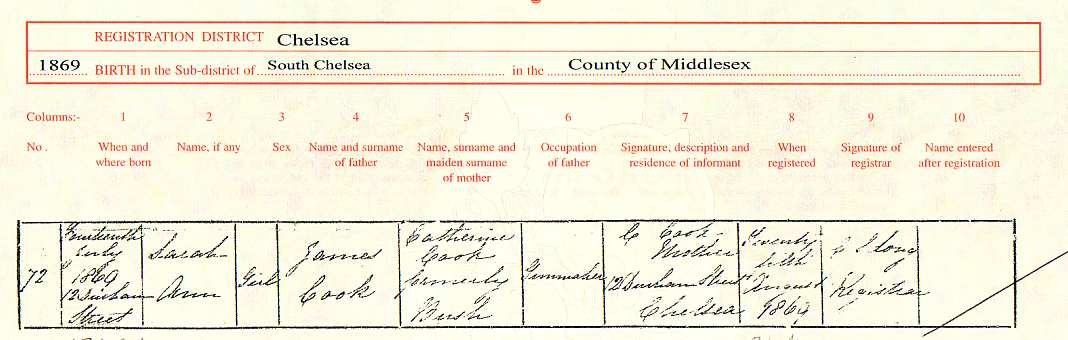 REGISTRATION DISTRICT Chelsea
1869 BIRTH in the Sub-district of South Chelsea in the County of Middlesex
Columns:- 1 2 3 4 5 6 7 8 9 10
No. When and where born Name, if any Sex Name and surname of father Name, surname and maiden surname of mother Occupation of father Signature, description and residence of informant When registered Signature of registrar Name entered after registration
72
Fourteenth
July
1869
12 Durham
Street
Sarah
Ann
Girl
James
Cook
Catherine
Cook
formerly
Bush
Gunmaker
C Cook
Mother
12 Durham Street
Chelsea
Twenty
August
1869
Registrar